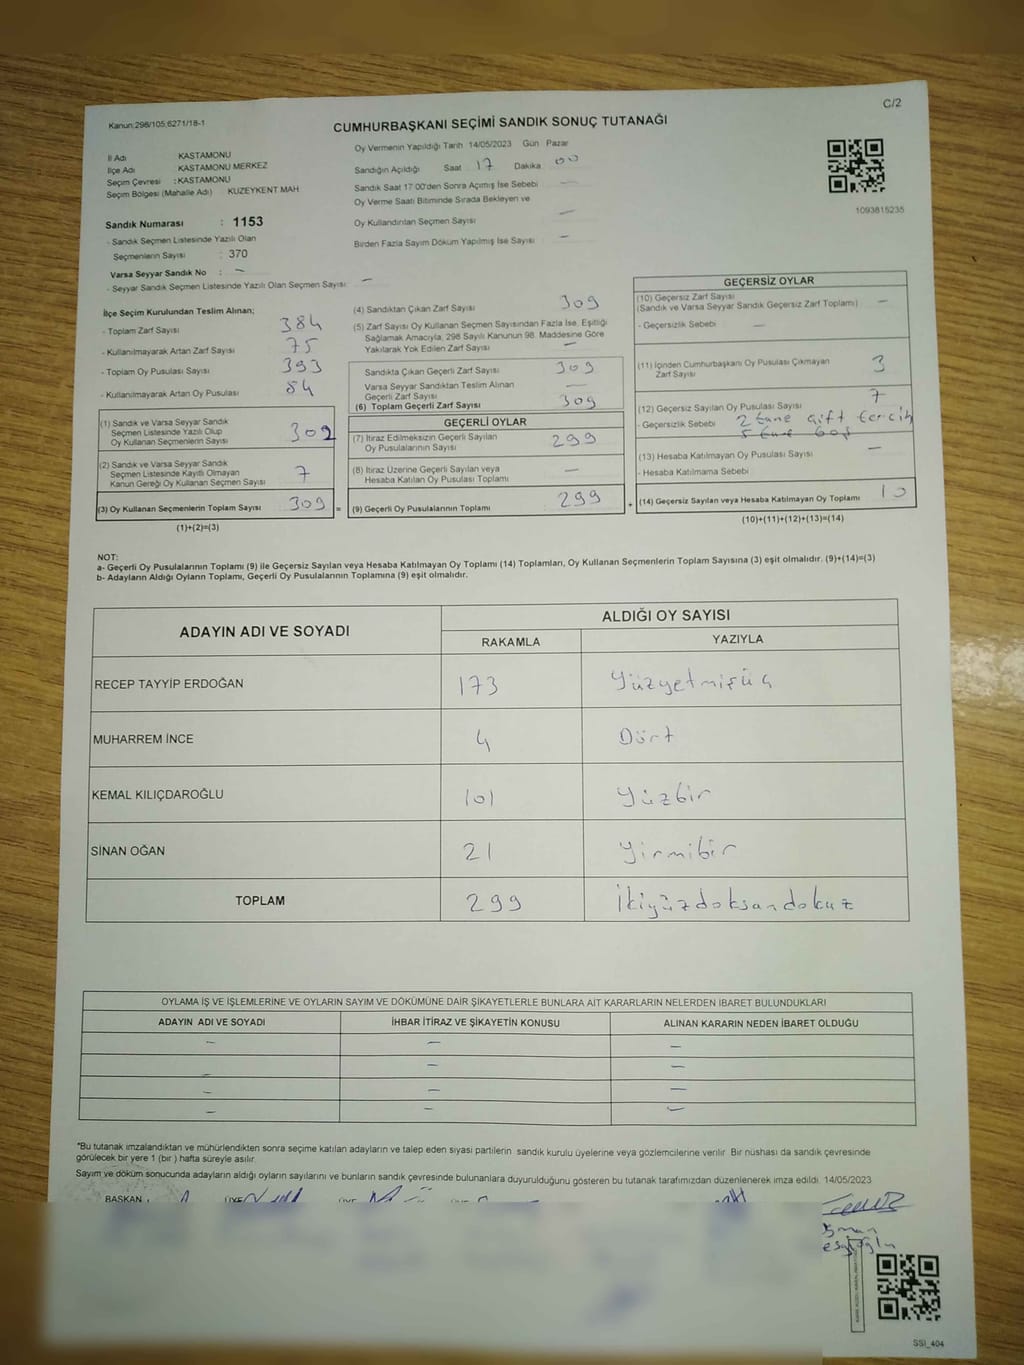 C/2
Kanun:298/105;6271/18-1
CUMHURBAŞKANI SEÇİMİ SANDIK SONUÇ TUTANAĞI
İl Adı KASTAMONU
İlçe Adı KASTAMONU MERKEZ
Seçim Çevresi : KASTAMONU
Seçim Bölgesi (Mahalle Adı) KUZEYKENT MAH
Sandık Numarası : 1153
- Sandık Seçmen Listesinde Yazılı Olan
Seçmenlerin Sayısı : 370
Varsa Seyyar Sandık No : –
- Seyyar Sandık Seçmen Listesinde Yazılı Olan Seçmen Sayısı: –
Oy Vermenin Yapıldığı Tarih 14/05/2023 Gün Pazar
Sandığın Açıldığı Saat 17 Dakika 00
Sandık Saat 17:00'den Sonra Açımış İse Sebebi –
Oy Verme Saati Bitiminde Sırada Bekleyen ve
Oy Kullandırılan Seçmen Sayısı –
Birden Fazla Sayım Döküm Yapılmış İse Sayısı –
1093815235
İlçe Seçim Kurulundan Teslim Alınan;
- Toplam Zarf Sayısı 384
- Kullanılmayarak Artan Zarf Sayısı 75
- Toplam Oy Pusulası Sayısı 393
- Kullanılmayarak Artan Oy Pusulası 84
(1) Sandık ve Varsa Seyyar Sandık
Seçmen Listesinde Yazılı Olup
Oy Kullanan Seçmenlerin Sayısı 302
(2) Sandık ve Varsa Seyyar Sandık
Seçmen Listesinde Kayıtlı Olmayan
Kanun Gereği Oy Kullanan Seçmen Sayısı 7
(3) Oy Kullanan Seçmenlerin Toplam Sayısı 309 =
(1)+(2)=(3)
(4) Sandıktan Çıkan Zarf Sayısı 309
(5) Zarf Sayısı Oy Kullanan Seçmen Sayısından Fazla İse, Eşitliği
Sağlamak Amacıyla, 298 Sayılı Kanunun 98. Maddesine Göre
Yakılarak Yok Edilen Zarf Sayısı –
Sandıkta Çıkan Geçerli Zarf Sayısı 309
Varsa Seyyar Sandıktan Teslim Alınan
Geçerli Zarf Sayısı –
(6) Toplam Geçerli Zarf Sayısı 309
GEÇERLİ OYLAR
(7) İtiraz Edilmeksizin Geçerli Sayılan
Oy Pusulalarının Sayısı 299
(8) İtiraz Üzerine Geçerli Sayılan veya
Hesaba Katılan Oy Pusulası Toplamı –
(9) Geçerli Oy Pusulalarının Toplamı 299 +
GEÇERSİZ OYLAR
(10) Geçersiz Zarf Sayısı
(Sandık ve Varsa Seyyar Sandık Geçersiz Zarf Toplamı) –
- Geçersizlik Sebebi –
(11) İçinden Cumhurbaşkanı Oy Pusulası Çıkmayan
Zarf Sayısı 3
(12) Geçersiz Sayılan Oy Pusulası Sayısı 7
- Geçersizlik Sebebi 2 tane çift tercih
5 tane boş
(13) Hesaba Katılmayan Oy Pusulası Sayısı –
- Hesaba Katılmama Sebebi
(14) Geçersiz Sayılan veya Hesaba Katılmayan Oy Toplamı 10
(10)+(11)+(12)+(13)=(14)
NOT:
a- Geçerli Oy Pusulalarının Toplamı (9) ile Geçersiz Sayılan veya Hesaba Katılmayan Oy Toplamı (14) Toplamları, Oy Kullanan Seçmenlerin Toplam Sayısına (3) eşit olmalıdır. (9)+(14)=(3)
b- Adayların Aldığı Oyların Toplamı, Geçerli Oy Pusulalarının Toplamına (9) eşit olmalıdır.
ADAYIN ADI VE SOYADI
ALDIĞI OY SAYISI
RAKAMLA YAZIYLA
RECEP TAYYİP ERDOĞAN 173 Yüzyetmişüç
MUHARREM İNCE 4 Dört
KEMAL KILIÇDAROĞLU 101 Yüzbir
SİNAN OĞAN 21 Yirmibir
TOPLAM 299 İkiyüzdoksandokuz
OYLAMA İŞ VE İŞLEMLERİNE VE OYLARIN SAYIM VE DÖKÜMÜNE DAİR ŞİKAYETLERLE BUNLARA AİT KARARLARIN NELERDEN İBARET BULUNDUKLARI
ADAYIN ADI VE SOYADI İHBAR İTİRAZ VE ŞİKAYETİN KONUSU ALINAN KARARIN NEDEN İBARET OLDUĞU
– – –
– – –
– – –
– – –
*Bu tutanak imzalandıktan ve mühürlendikten sonra seçime katılan adayların ve talep eden siyasi partilerin sandık kurulu üyelerine veya gözlemcilerine verilir. Bir nüshası da sandık çevresinde
görülecek bir yere 1 (bir ) hafta süreyle asılır.
Sayım ve döküm sonucunda adayların aldığı oyların sayılarını ve bunların sandık çevresinde bulunanlara duyurulduğunu gösteren bu tutanak tarafımızdan düzenlenerek imza edildi. 14/05/2023
BAŞKAN
SSİ_404